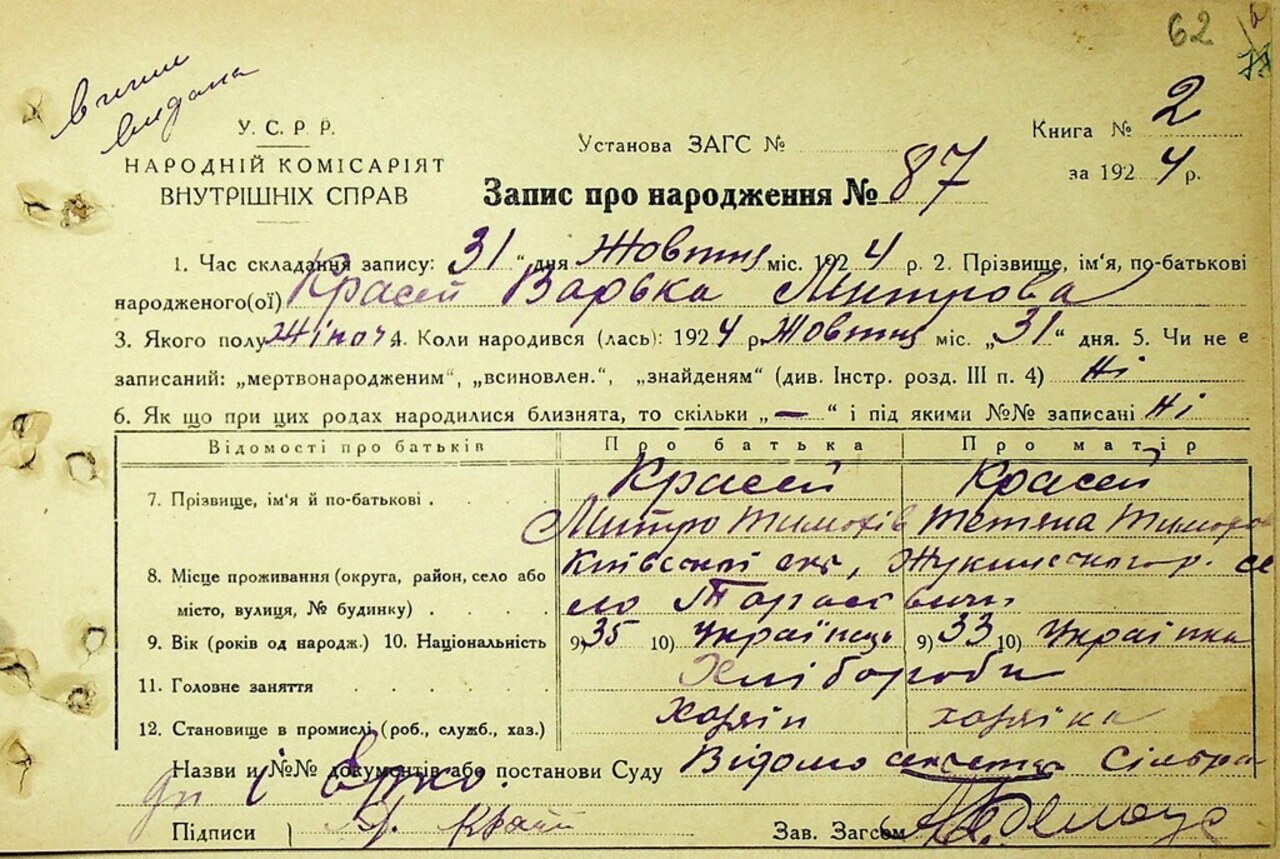 62
У. С. Р. Р.
НАРОДНІЙ КОМІСАРІЯТ
ВНУТРІШНІХ СПРАВ
Установа ЗАГС №
Книга № 2
за 1924 р.
Запис про народження № 87
1. Час складання запису: 31 " дня Жовтня міс. 1924 р. 2. Прізвище, ім'я, по-батькові
народженого(ої) Красей Варька Митрова
3. Якого полу Жіноч 4. Коли народився (лась): 1924 р. Жовтня міс. „31“ дня. 5. Чи не є
записаний: „мертвонародженим“, „всиновлен.“, „знайденям“ (див. Інстр. розд. III п. 4) Ні
6. Як що при цих родах народилися близнята, то скільки „—“ і під якими №№ записані Ні
Відомості про батьків Про батька Про матір
7. Прізвище, ім'я й по-батькові . Красей Красей
Митро Тимохів Тетяна
8. Місце проживання (округа, район, село або
місто, вулиця, № будинку) . . . .
9. Вік (років од народж.) 10. Національність 9) 35 10) Українець 9) 33 10) Українка
11. Головне заняття . . . . . Хлібороби
12. Становище в промислі (роб., служб., хаз.) хазяїн хазяйка
Назви и №№ документів або постанови Суду Відомо
Підписи
Зав. Загсом